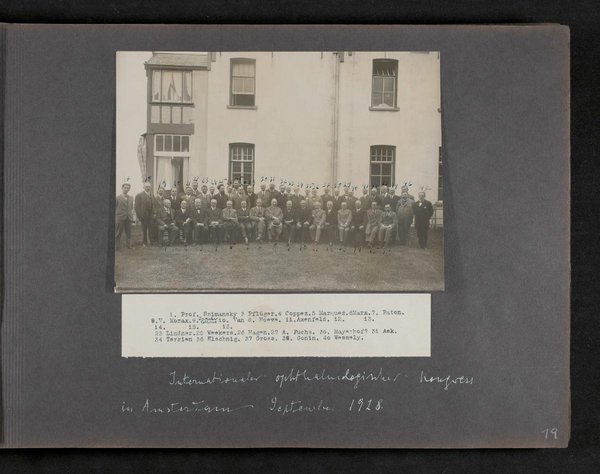 1. Prof. Szimansky 3 Pflüger.4 Coppez.5 Marquez.6Marx.7. Paton.
8.V. Morax.9. 10. Van d. Hoeve. 11.Axenfeld. 12. 13.
14. 15. 16.
23 Lindner.25 Weekers.26 Hagen.27 A. Fuchs. 30. Mayerhof? 31 Ask.
34 Terrien 36 Elschnig. 37 Gross. 38. Gonin. 40 Wessely.
Internationaler ophthalmologischer Kongress
in Amsterdam September 1928.
19